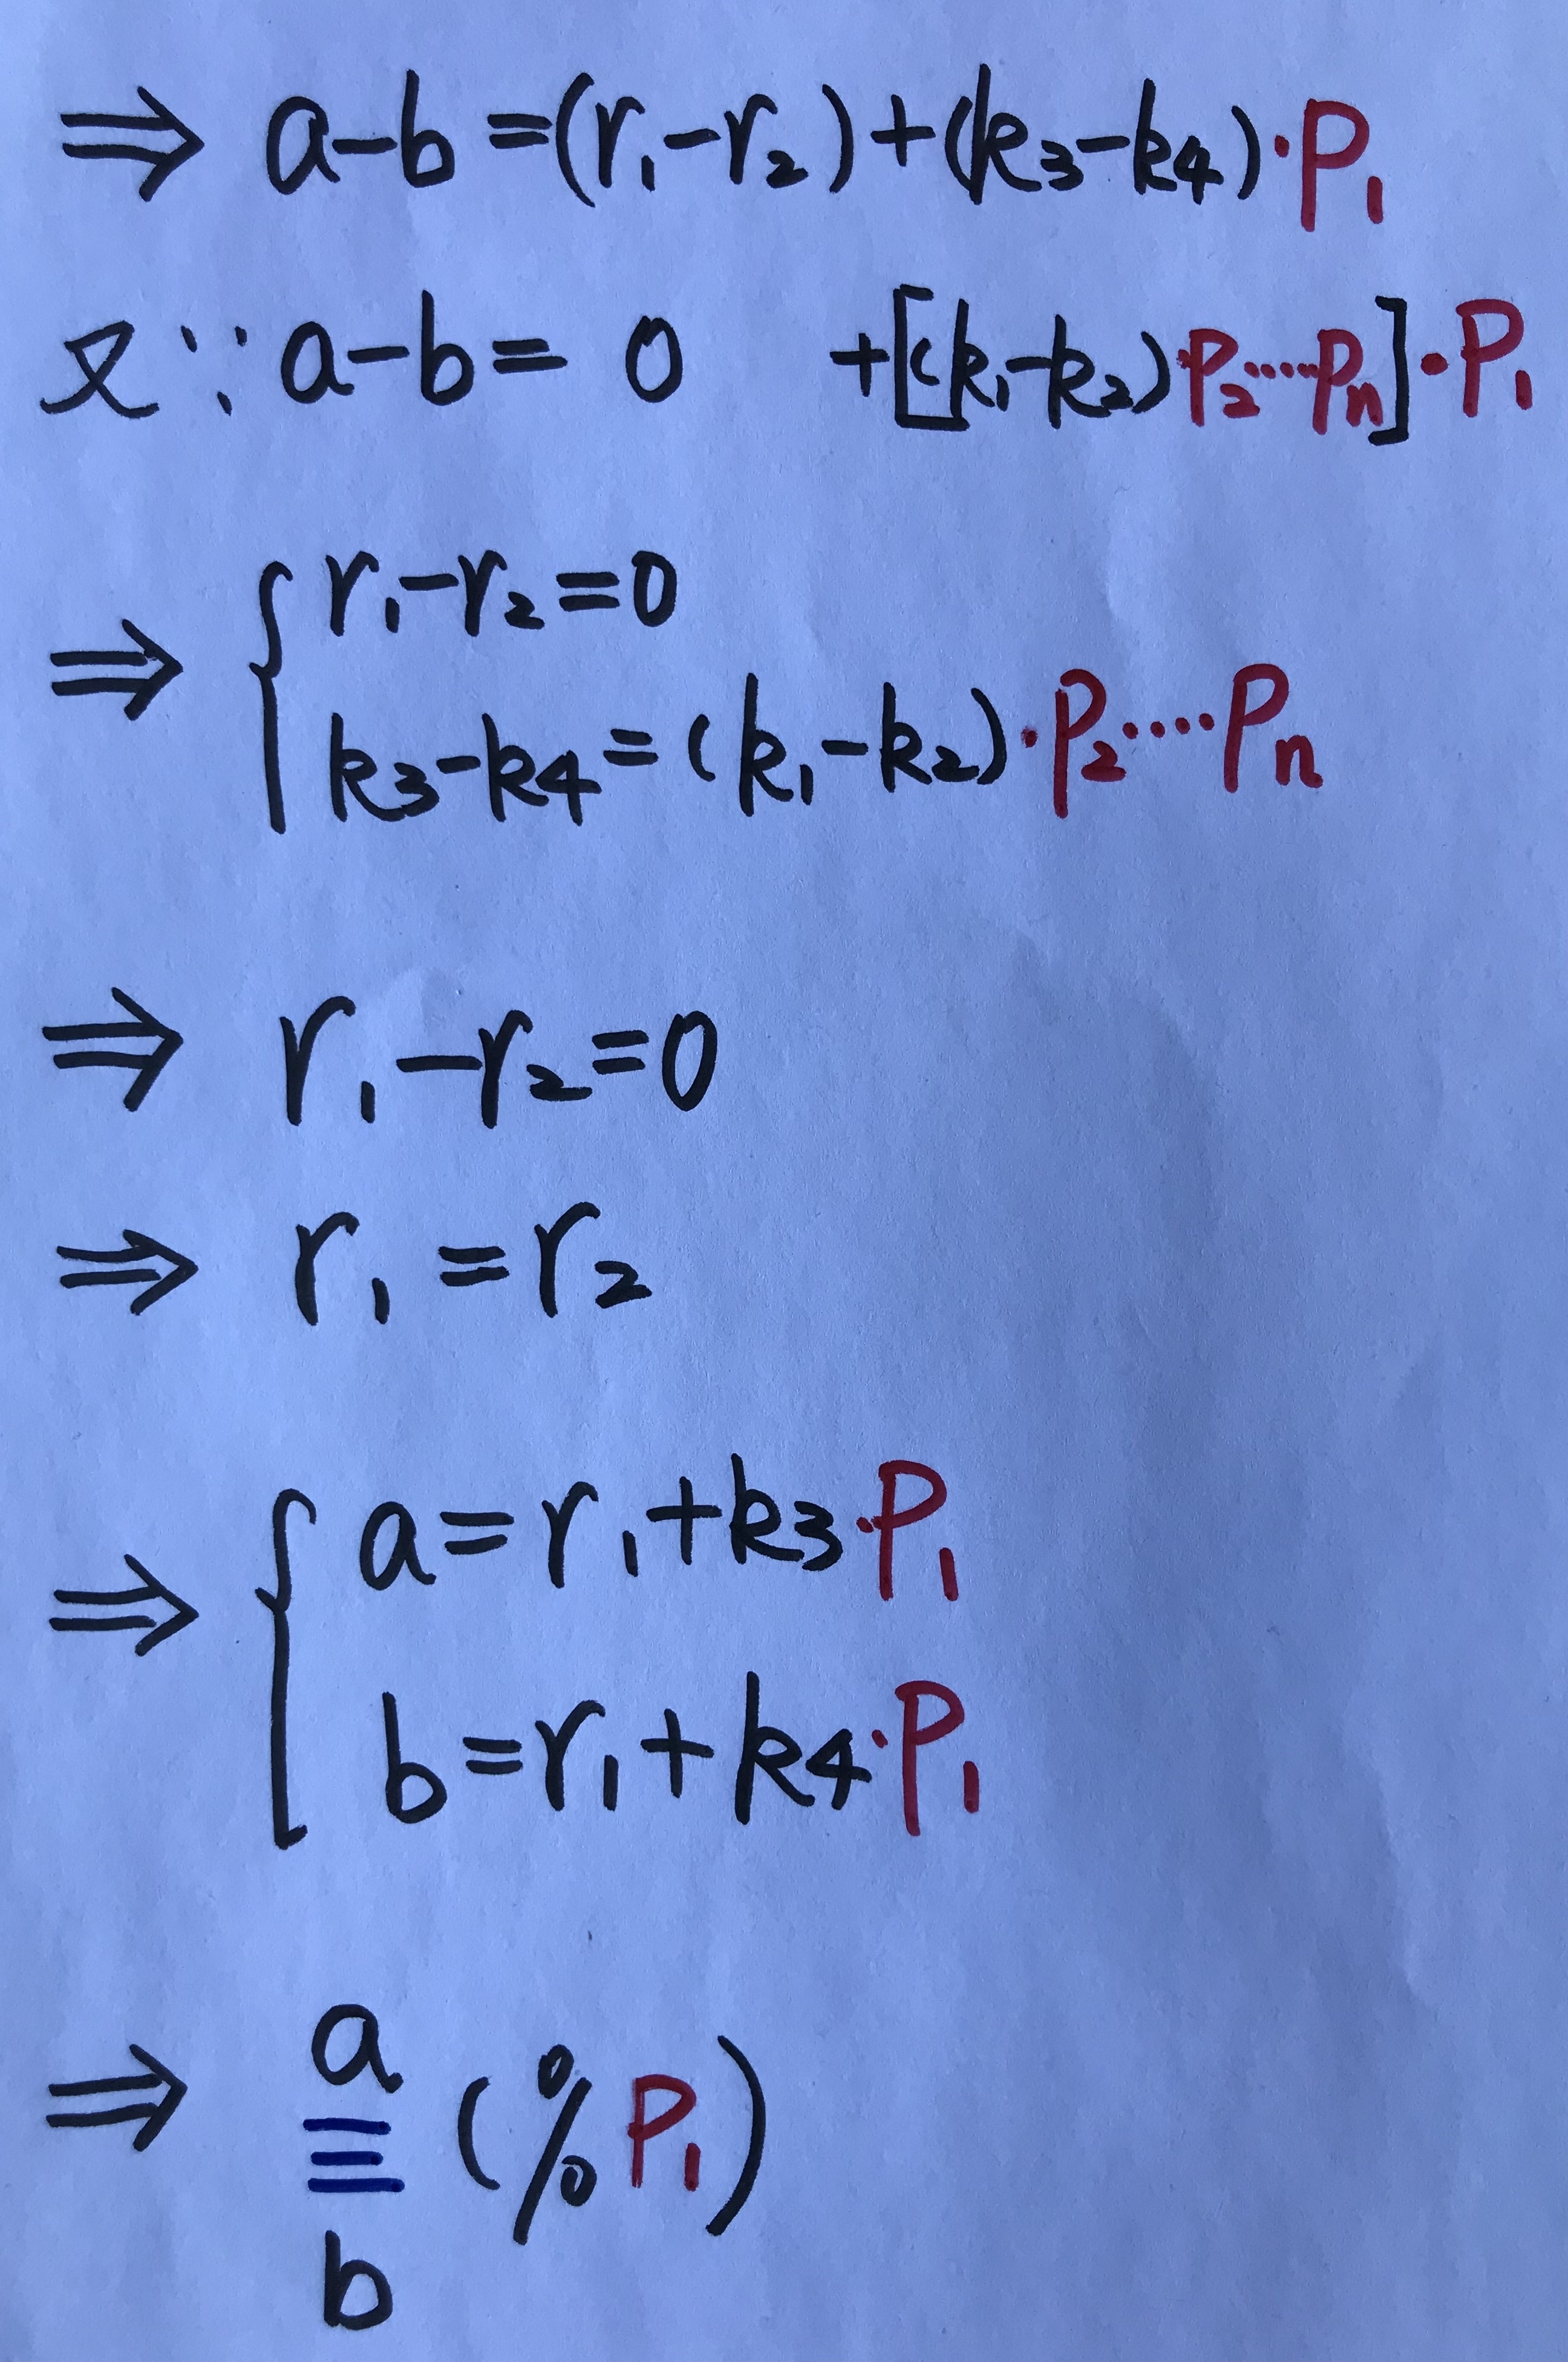 ⇒ a-b=(r₁-r₂)+(k₃-k₄)·P₁
又∵a-b= 0 +[(k₁-k₂)P₂·····Pₙ]·P₁
⇒ { r₁-r₂=0
k₃-k₄=(k₁-k₂)·P₂····Pₙ
⇒ r₁-r₂=0
⇒ r₁=r₂
⇒ { a=r₁+k₃·P₁
b=r₁+k₄·P₁
⇒ a
≡ (%P₁)
b